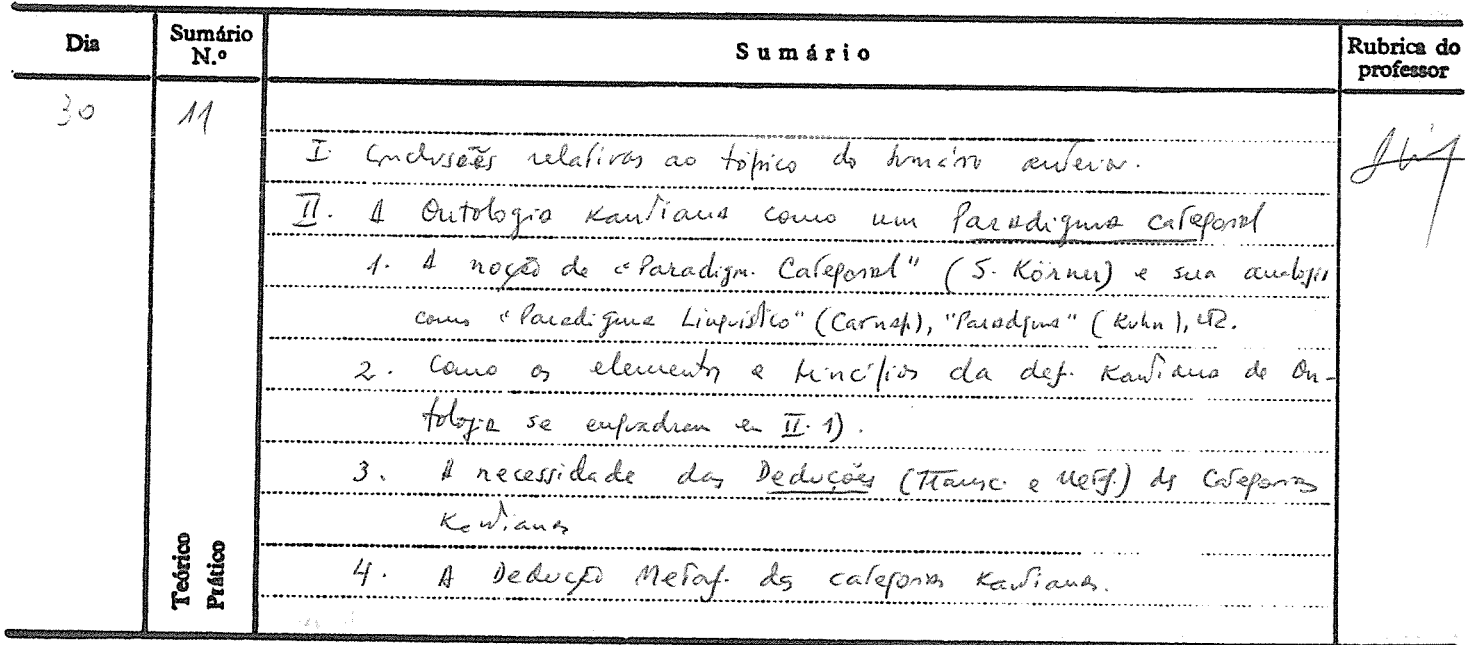 Dia Sumário N.º Sumário Rubrica do professor
30 11
I. Conclusões relativas ao tópico do sumário anterior.
II. A Ontologia Kantiana como um Paradigma categorial
1. A noção de "Paradigm. Categorial" (S. Körner) e sua analogia
como "Paradigma Linguístico" (Carnap), "Paradigma" (Kuhn), etc.
2. Como os elementos e princípios da def. Kantiana de On-
tologia se enquadram em II. 1).
3. A necessidade das Deduções (Transc. e Metaf.) das Categorias
Kantianas
4. A Dedução Metaf. das categorias Kantianas.
Teórico
Prático